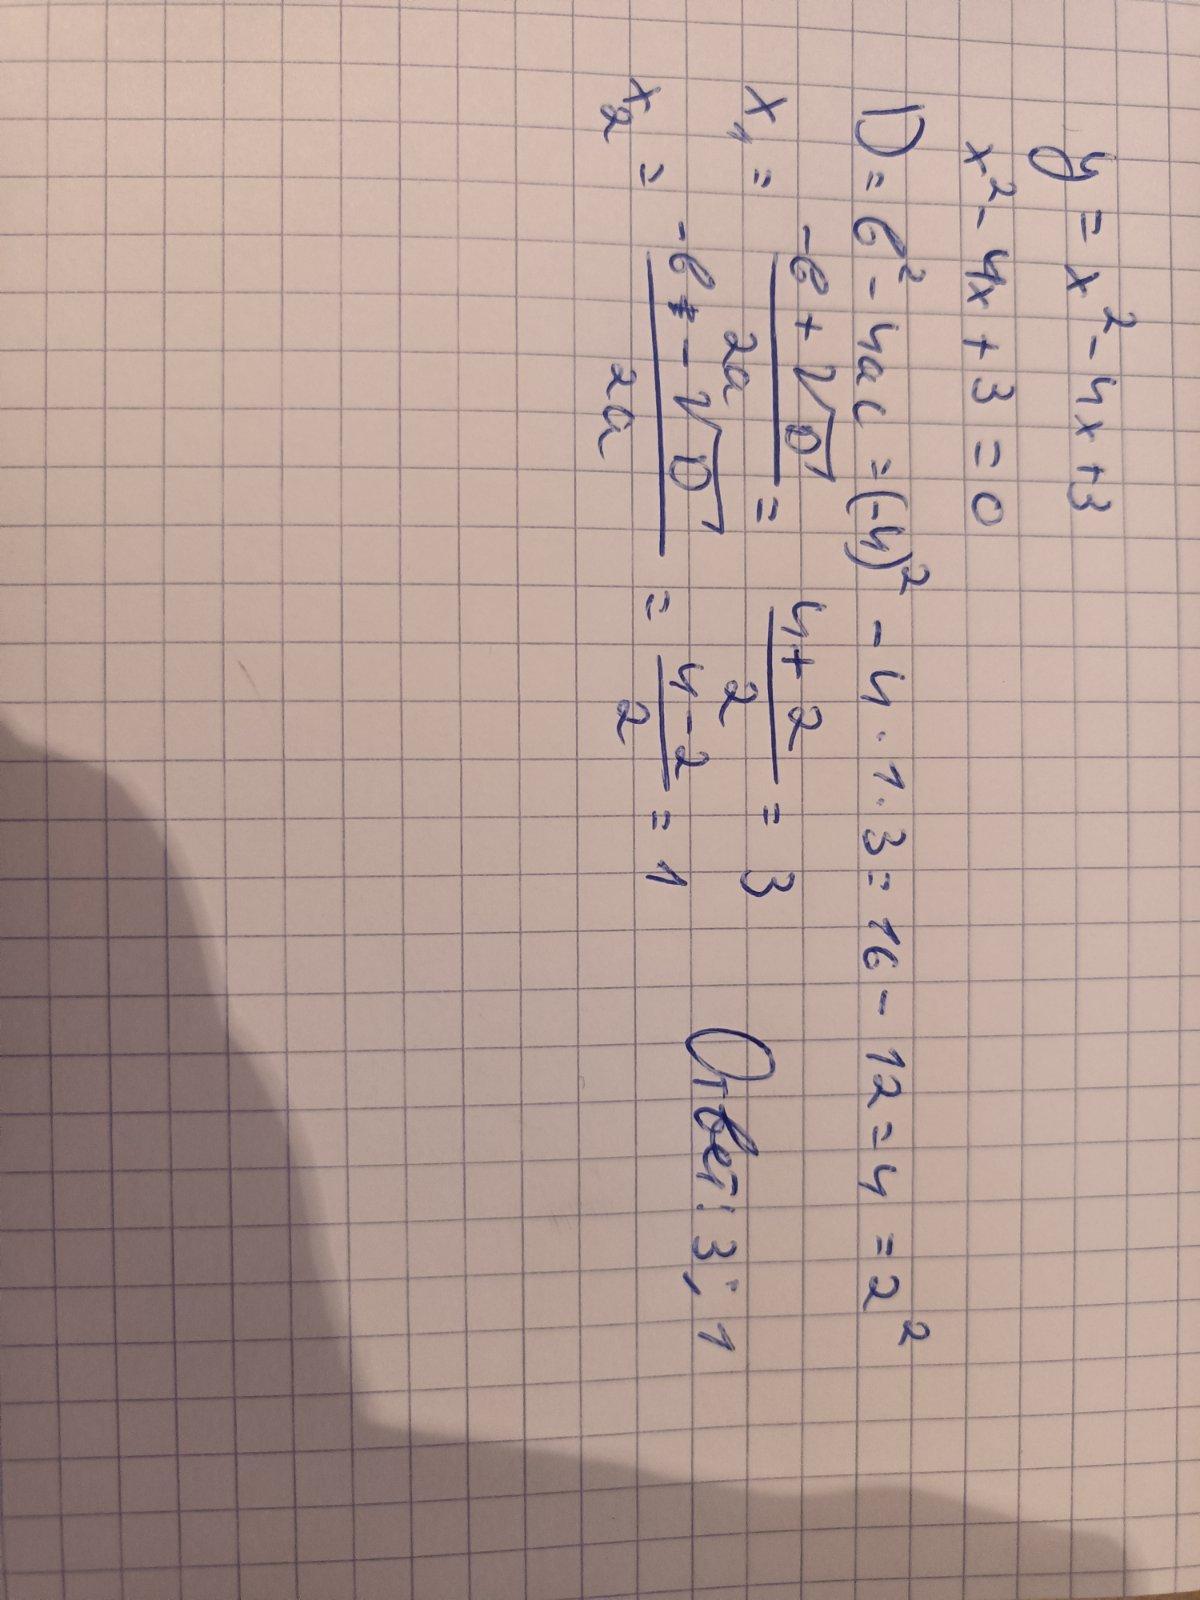 y = x² - 4x + 3
x² - 4x + 3 = 0
D = b² - 4ac = (-4)² - 4 · 1 · 3 = 16 - 12 = 4 = 2²
x₁ = (-b + √D) / 2a = (4 + 2) / 2 = 3
x₂ = (-b - √D) / 2a = (4 - 2) / 2 = 1
Ответ: 3; 1